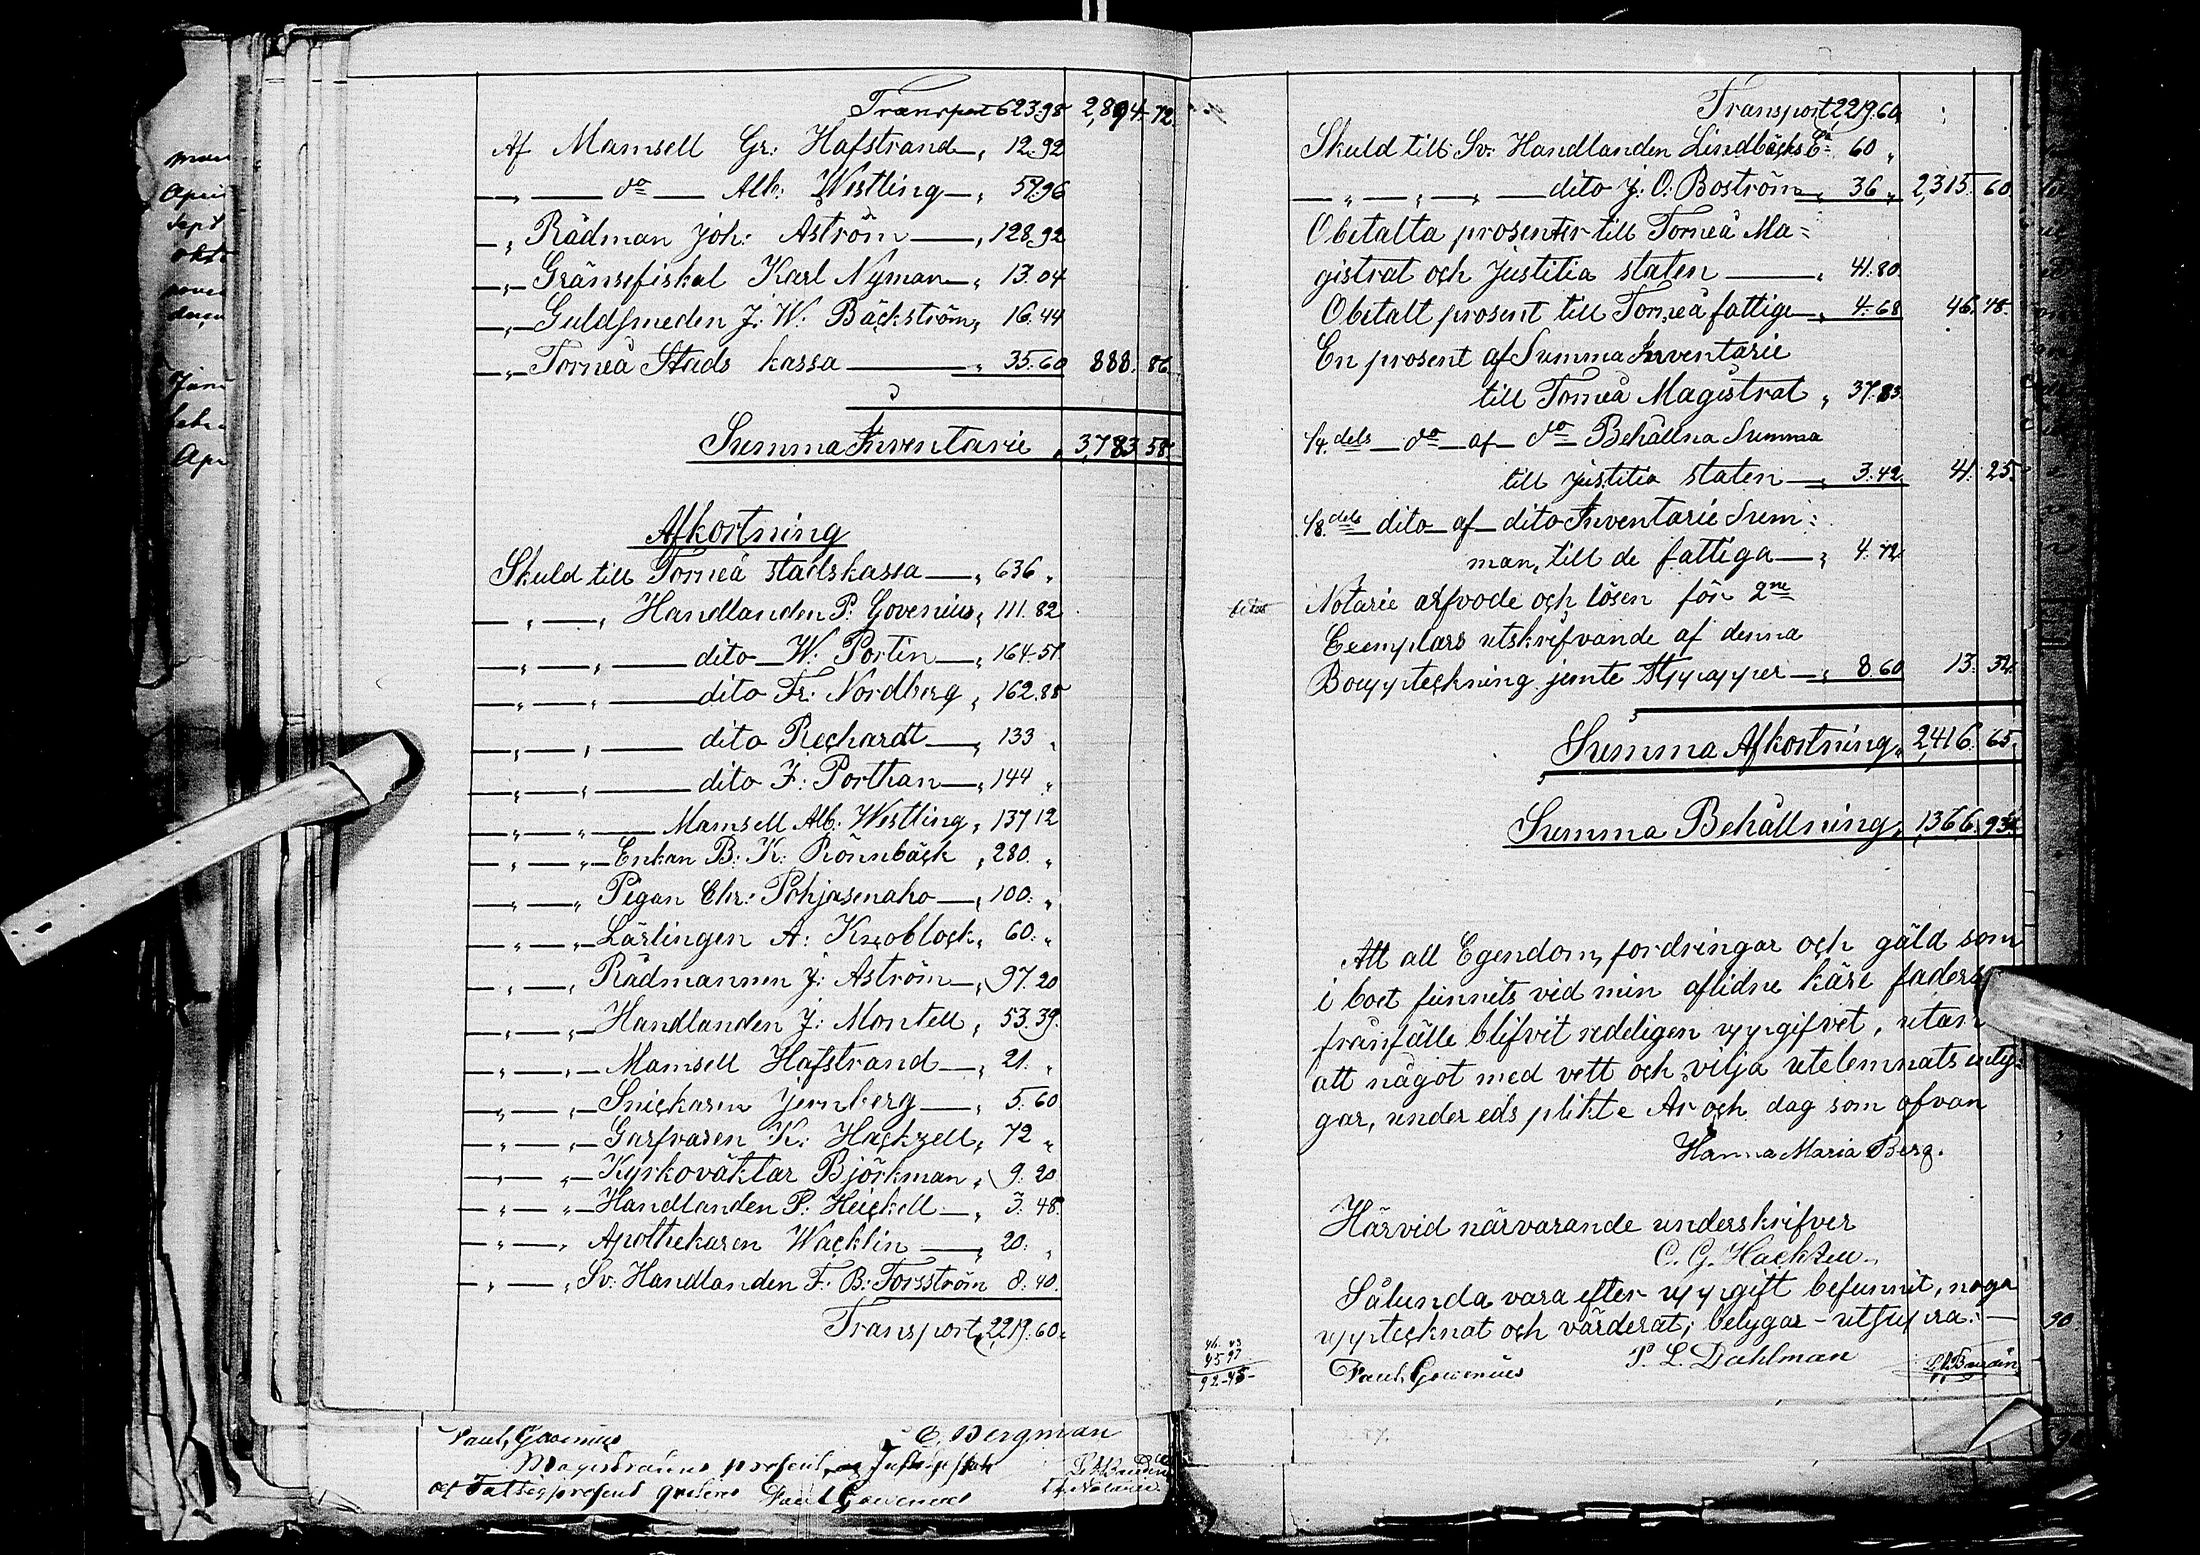 Transport 623.98 2,894.72.
Af Mamsell Gr: Hafstrand — „ 12.92
— „ — do — Alb: Westling — „ 57.96
— „ Rådman Joh: Åström — „ 128.92
— „ Gränsefiskal Karl Nyman — „ 13.04
— „ Guldsmeden J. W. Bäckström „ 16.44
— „ Torneå Stads kassa — „ 35.60 888. 86.
Summa Inventarie „ 3,783 58.
Afkortning
Skuld till Torneå stadskassa — „ 636 „
— „ — „ Handlanden P. Govenius „ 111.82
— „ — „ — dito — W. Portin — „ 164.57
— „ — „ — dito Fr: Nordberg „ 162.88
— „ — „ — dito Rechardt — „ 133 „
— „ — „ — dito F: Porthan — „ 144 „
— „ — „ — Mamsell Alb: Westling „ 137 12
— „ — „ — Enkan B: K: Rönnbäck „ 280 „
— „ — „ Pigan Chr: Pohjasenaho — „ 100. „
— „ — „ — Lärlingen A: Knoblock „ 60. „
— „ — „ Rådmannen J: Åström — „ 97.20
— „ — „ — Handlanden J: Montell „ 53.39.
— „ — „ — Mamsell Hafstrand — „ 21. „
— „ — „ — Snickaren Jernberg — „ 5.60
— „ — „ — Garfvaren K: Hackzell „ 72 „
— „ — „ — Kyrkoväktar Björkman „ 9.20
— „ — „ — Handlanden P. Heickell — „ 3.48.
— „ — „ Apothekaren Wacklin — „ 20. „
— „ — „ Sv: Handlanden F: B: Forsström 8.40.
Transport „ 2219.60.
Paul Govenius E. Bergman
Magistratens prosent
Paul Govenius
Transport 2,219.60
Skuld till Sv: Handlanden Lindbäcks E: 60 „
— „ — „ — „ — dito J. O. Boström „ 36 „ 2,315. 60.
Obetalta prosenter till Torneå Ma=
gistrat och Justitia staten — „ 41.80
Obetalt prosent till Torneå fattige — „ 4.68 46. 48.
En prosent af Summa Inventarie
till Torneå Magistrat „ 37.83.
1/4 dels — do — af — do Behållna Summa
till Justitia staten — „ 3.42 41. 25.
1/8 dels dito — af — dito Inventarie Sum:
man, till de fattiga — „ 4.72
Notarie arfvode och lösen för 2ne
Exemplars utskrifvande af denna
Bouppteckning jemte Stppapper — „ 8.60 13. 32.
Summa Afkortning „ 2,416. 65.
Summa Behållning „ 1,366. 93.
Att all Egendom, fordringar och gäld som
i boet funnits vid min aflidne käre faders
frånfälle blifvit redeligen uppgifvet, utan
att något med vett och vilja utelemnats inty:
gar, under eds plikt e År och dag som ofvan
Hanna Maria Berg.
Härvid närvarande underskrifver
C. G. Hackzell
Sålunda vara efter uppgift befunnit, noga
upptecknat och värderat; betygar — utsupra: —
Paul Govenius P. L. Dahlman
92.45